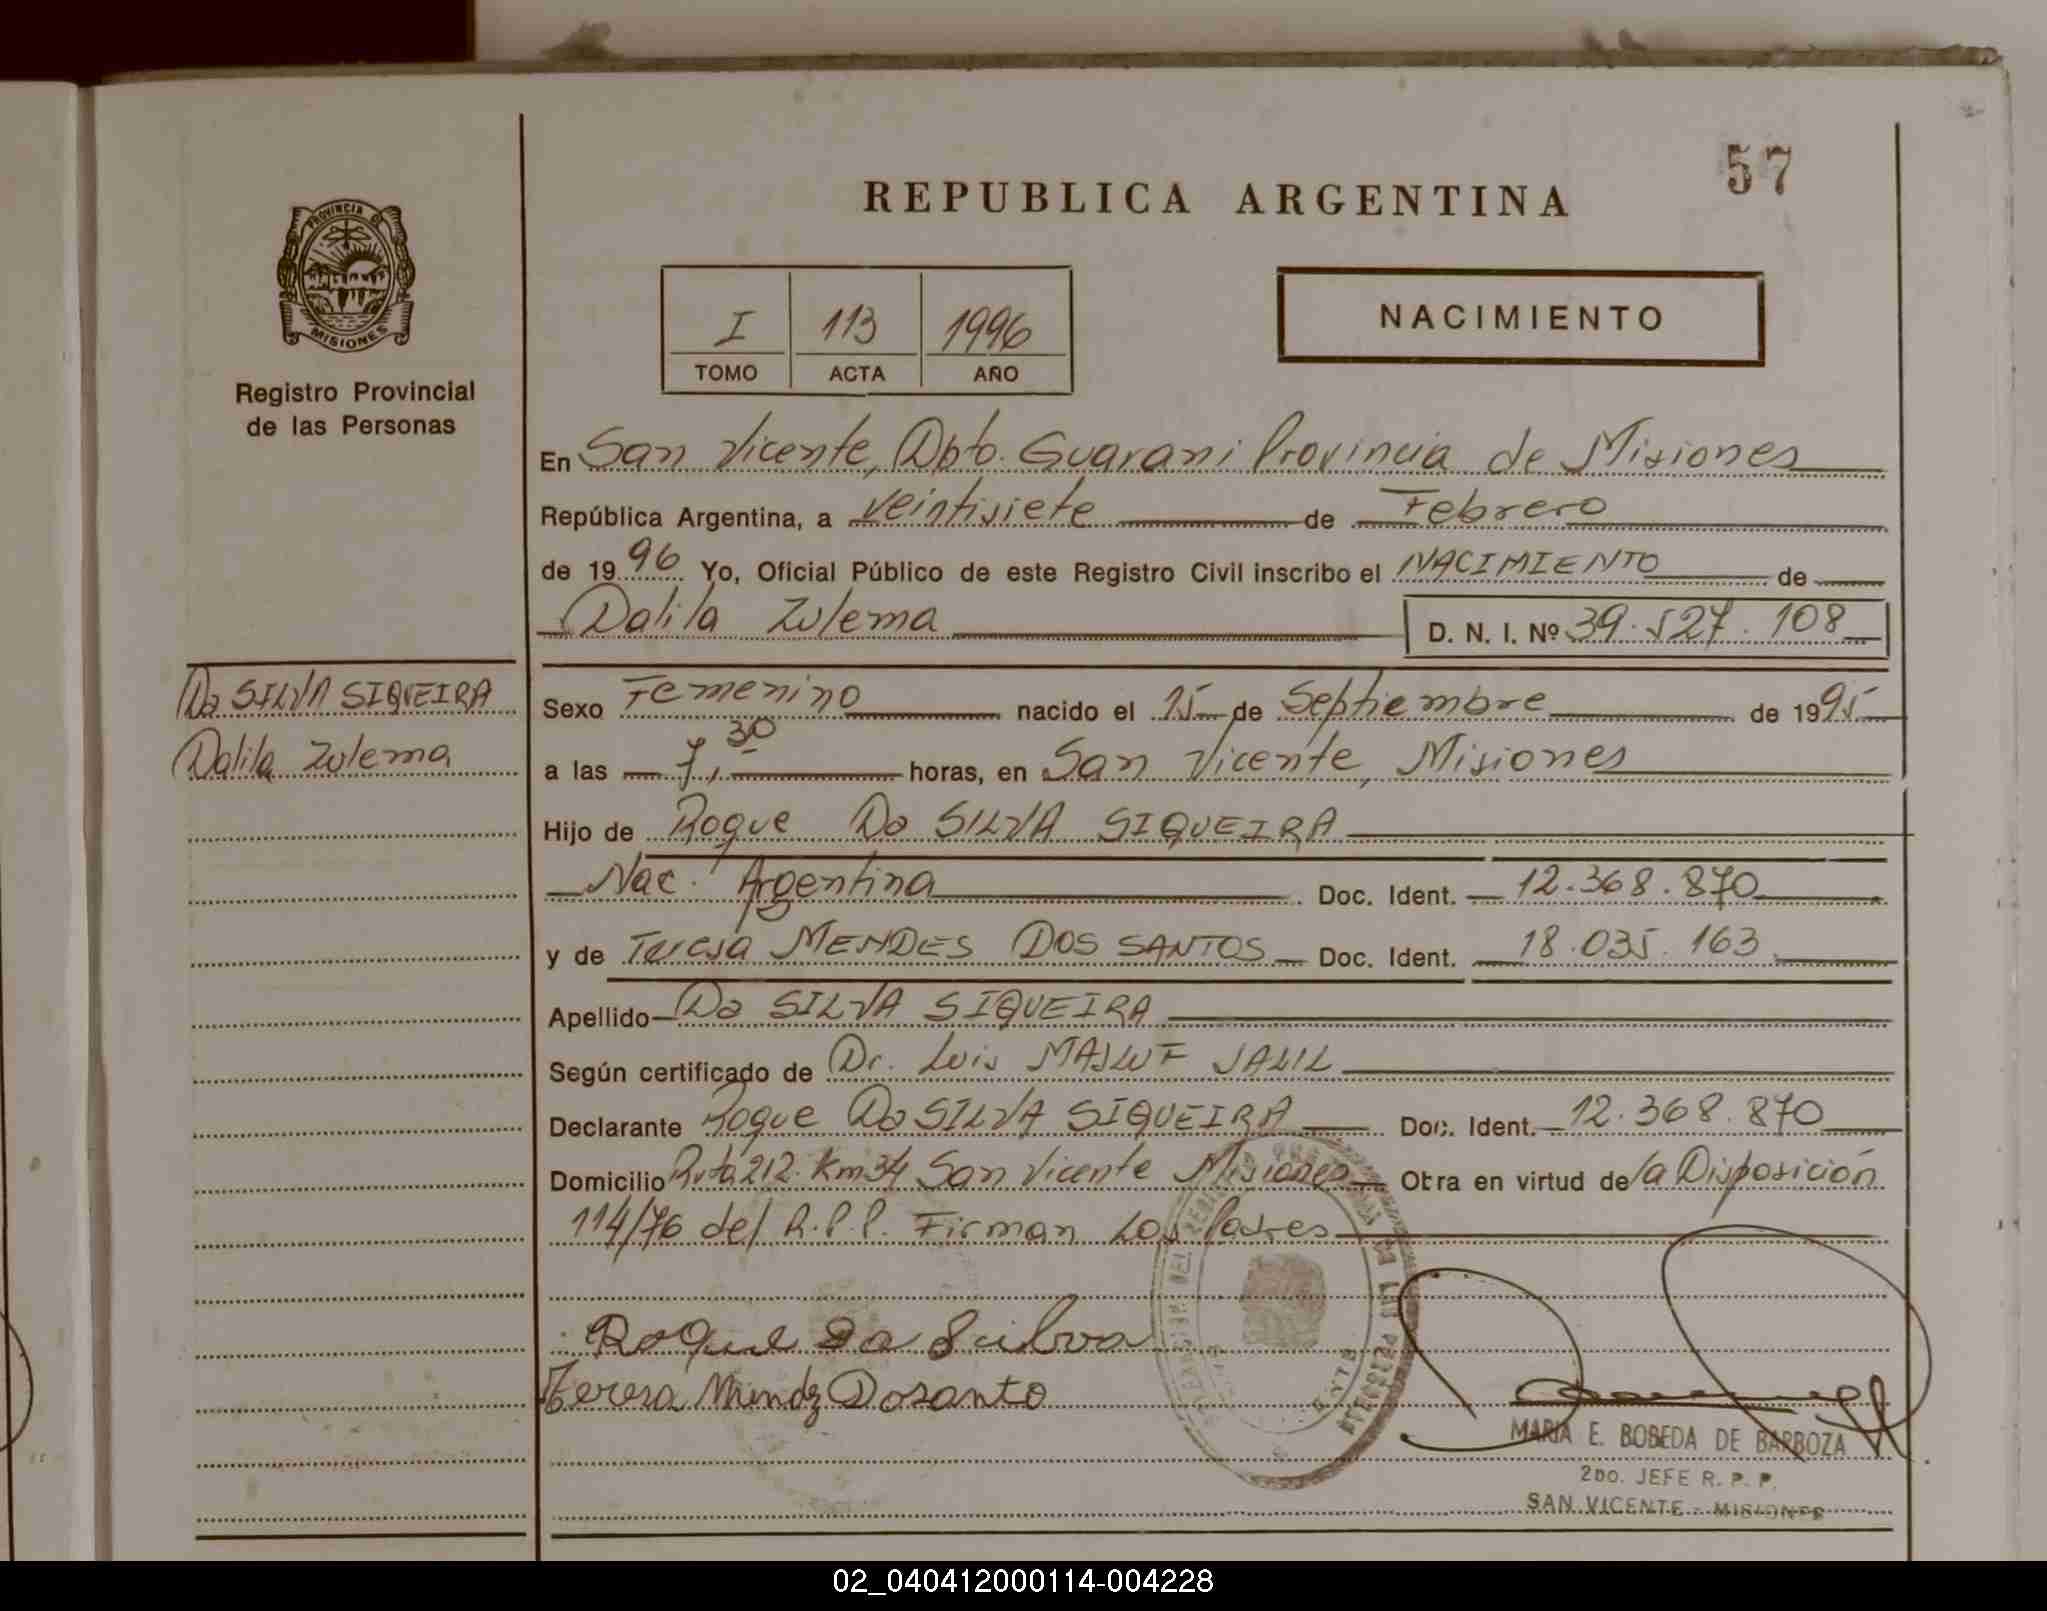 57
REPUBLICA ARGENTINA
PROVINCIA DE
MISIONES
Registro Provincial
de las Personas
I 113 1996
TOMO ACTA AÑO
NACIMIENTO
En San Vicente, Dpto. Guarani Provincia de Misiones
República Argentina, a veintisiete de Febrero
de 1996 Yo, Oficial Público de este Registro Civil inscribo el NACIMIENTO de
Dalila Zulema D. N. I. Nº 39.527.108
Da SILVA SIQUEIRA
Dalila Zulema
Sexo Femenino nacido el 15 de Septiembre de 1995
a las 7,30 horas, en San Vicente, Misiones
Hijo de Roque Da SILVA SIQUEIRA
Nac. Argentina Doc. Ident. 12.368.870
y de Teresa MENDES DOS SANTOS Doc. Ident. 18.035.163
Apellido Da SILVA SIQUEIRA
Según certificado de Dr. Luis MASLUF JALIL
Declarante Roque Da SILVA SIQUEIRA Doc. Ident. 12.368.870
Domicilio Ruta 212. Km 34 San Vicente Misiones Otra en virtud de la Disposición
114/76 del R.P.P. Firman Los Padres
Roque Da Silva
Teresa Mindz Dosanto
MARIA E. BOBEDA DE BARBOZA
2DO. JEFE R. P. P.
SAN VICENTE - MISIONES
02_040412000114-004228